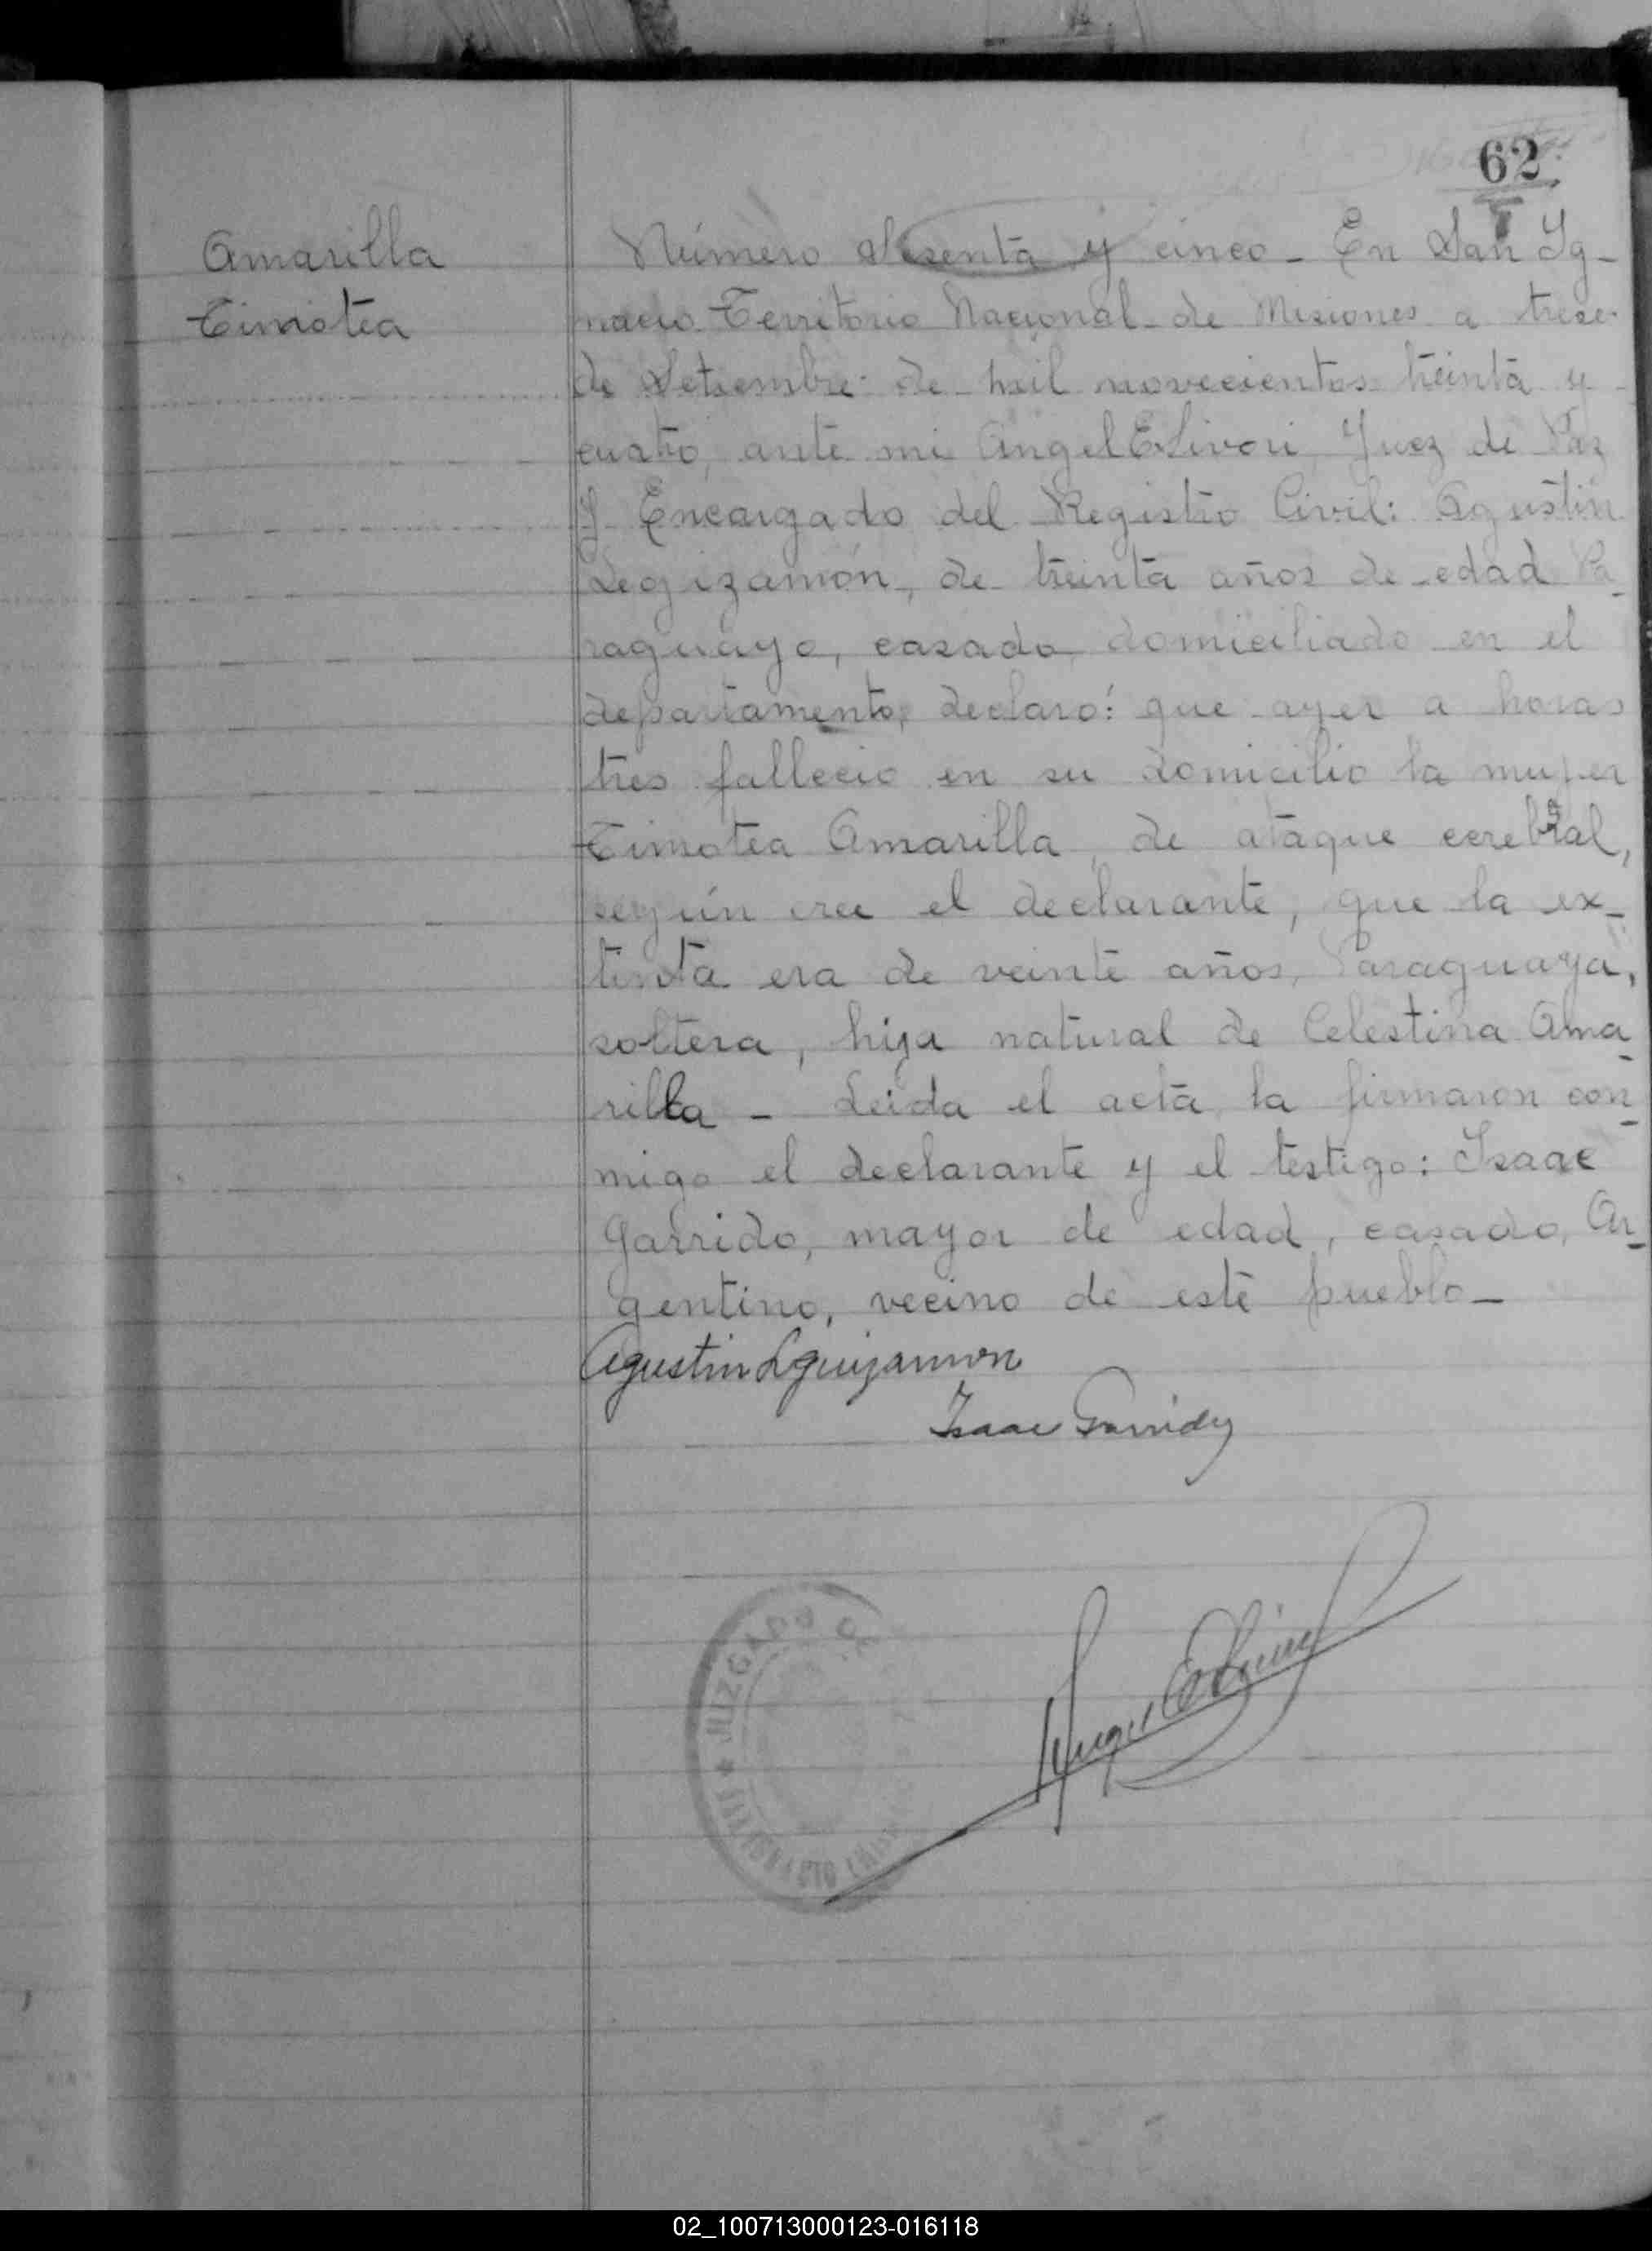 62
Amarilla
Timotea
Número Sesenta y cinco - En San Ig-
nacio Territorio Nacional de Misiones a trece
de Setiembre de mil novecientos treinta y
cuatro, ante mi Angel E. Livori, Juez de Paz
y Encargado del Registro Civil: Agustin
Legizamón, de treinta años de edad Pa-
raguayo, casado, domiciliado en el
departamento, declaró: que ayer a horas
tres fallecio en su domicilio la mujer
Timotea Amarilla, de ataque cerebral,
según cree el declarante, que la ex-
tinta era de veinte años, Paraguaya,
soltera, hija natural de Celestina Ama-
rilla - Leida el acta, la firmaron con-
migo el declarante y el testigo: Isaac
Garrido, mayor de edad, casado, Ar-
gentino, vecino de este pueblo -
Agustin Lguizamon
Isaac Garrido
JUZGADO DE
02_100713000123-016118